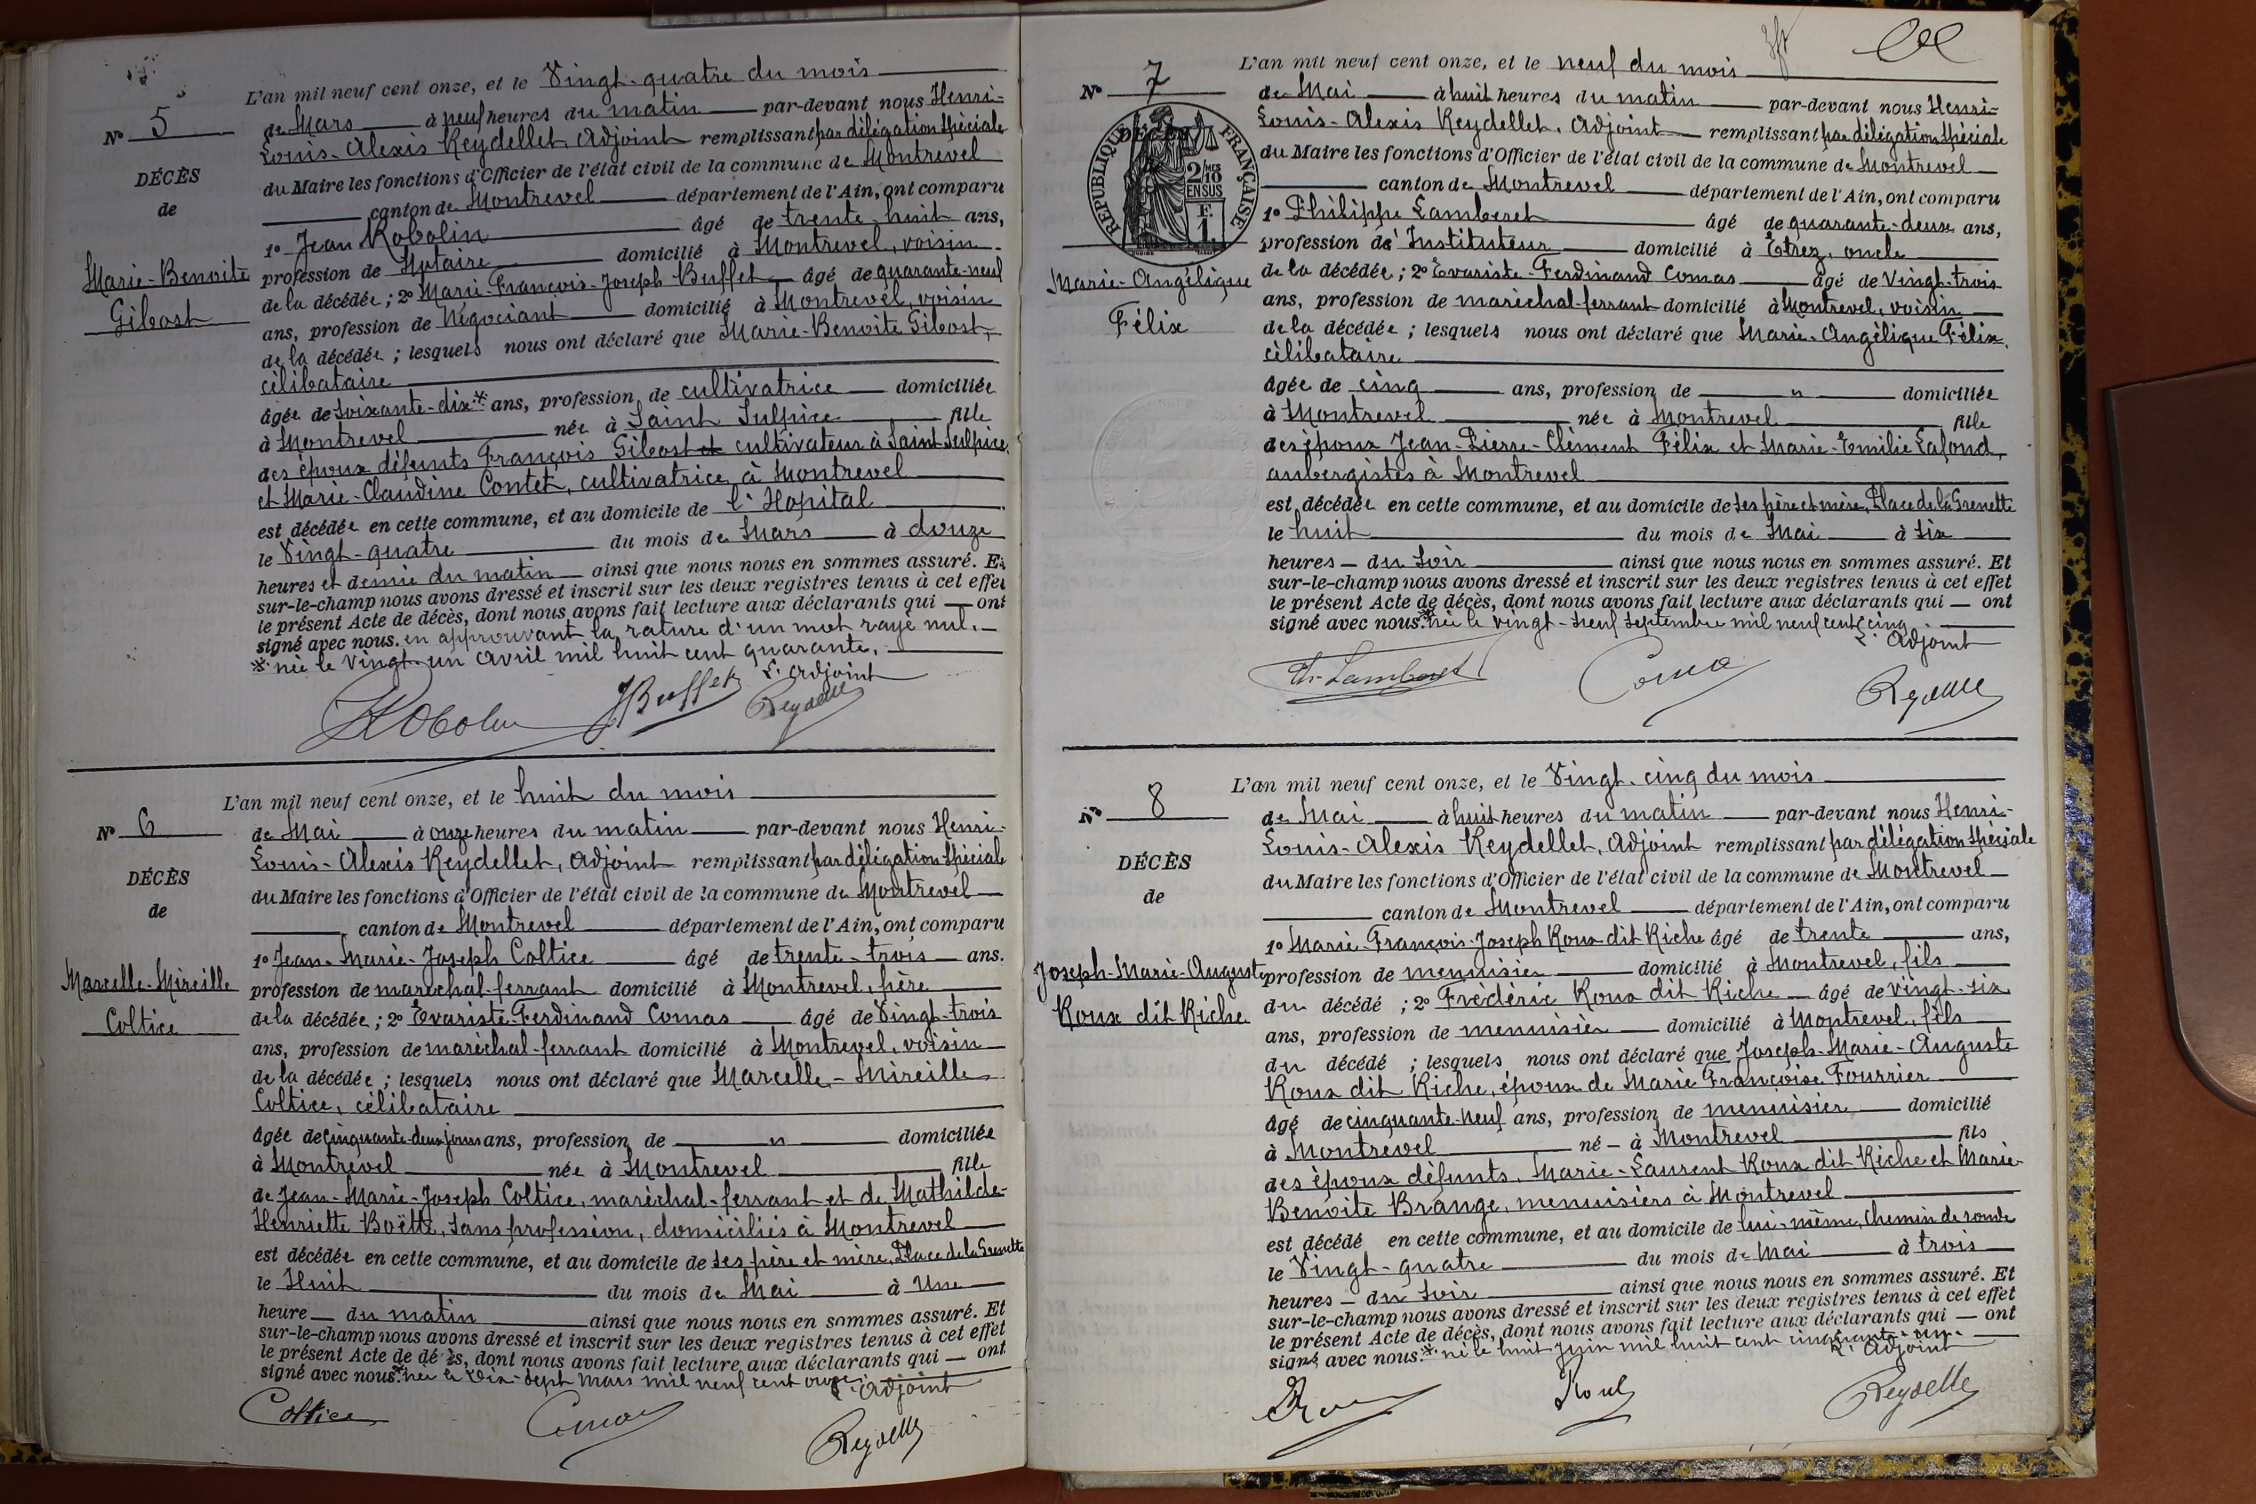 N° 5
DÉCÈS
de
Marie-Benoite
Gibost
L'an mil neuf cent onze, et le Vingt-quatre du mois
de Mars à neuf heures du matin par-devant nous Henri-
Louis-Alexis Reydellet, Adjoint remplissant par délégation spéciale
du Maire les fonctions d'Officier de l'état civil de la commune de Montrevel
canton de Montrevel département de l'Ain, ont comparu
1° Jean Robolin âgé de trente huit ans,
profession de Notaire domicilié à Montrevel, voisin
de la décédée ; 2° Marie-François-Joseph Buffet âgé de quarante-neuf
ans, profession de Négociant domicilié à Montrevel, voisin
de la décédée ; lesquels nous ont déclaré que Marie-Benoite Gibost,
célibataire
âgée de soixante-dix * ans, profession de cultivatrice domiciliée
à Montrevel née à Saint Sulpice fille
des époux défunts François Gibost et cultivateur à Saint Sulpice,
et Marie-Claudine Contet, cultivatrice à Montrevel
est décédée en cette commune, et au domicile de l'Hopital
le Vingt-quatre du mois de Mars à douze
heures et demie du matin ainsi que nous nous en sommes assuré. Et
sur-le-champ nous avons dressé et inscrit sur les deux registres tenus à cet effet
le présent Acte de décès, dont nous avons fait lecture aux déclarants qui — ont
signé avec nous. en approuvant la rature d'un mot rayé nul. —
* née le Vingt-un Avril mil huit cent quarante.
L'adjoint
Robolin JBuffet Reydellet
N° 6
DÉCÈS
de
Marcelle-Mireille
Coltice
L'an mil neuf cent onze, et le huit du mois
de Mai à onze heures du matin par-devant nous Henri-
Louis-Alexis Reydellet, Adjoint remplissant par délégation spéciale
du Maire les fonctions d'Officier de l'état civil de la commune de Montrevel
canton de Montrevel département de l'Ain, ont comparu
1° Jean-Marie-Joseph Coltice âgé de trente-trois ans.
profession de maréchal-ferrant domicilié à Montrevel, père
de la décédée ; 2° Evariste-Ferdinand Comas âgé de Vingt-trois
ans, profession de maréchal-ferrant domicilié à Montrevel, voisin
de la décédée ; lesquels nous ont déclaré que Marcelle-Mireille
Coltice, célibataire
âgée de cinquante-deux jours ans, profession de " domiciliée
à Montrevel née à Montrevel fille
de Jean-Marie-Joseph Coltice, maréchal-ferrant et de Mathilde-
Henriette Boëtte, sans profession, domiciliés à Montrevel
est décédée en cette commune, et au domicile de ses père et mère, Place de la Grenette
le Huit du mois de Mai à Une
heure — du matin ainsi que nous nous en sommes assuré. Et
sur-le-champ nous avons dressé et inscrit sur les deux registres tenus à cet effet
le présent Acte de décès, dont nous avons fait lecture aux déclarants qui — ont
signé avec nous. * née le Dix-sept Mars mil neuf cent onze.
L'adjoint
Coltice Comas Reydellet
N° 7
DÉCÈS
RÉPUBLIQUE FRANÇAISE
2/10 EN SUS
F. 1
Marie-Angélique
Félix
L'an mil neuf cent onze, et le neuf du mois
de Mai à huit heures du matin par-devant nous Henri-
Louis-Alexis Reydellet, Adjoint remplissant par délégation spéciale
du Maire les fonctions d'Officier de l'état civil de la commune de Montrevel
canton de Montrevel département de l'Ain, ont comparu
1° Philippe Lamberet âgé de quarante-deux ans,
profession d'Instituteur domicilié à Etrez, oncle
de la décédée ; 2° Evariste-Ferdinand Comas âgé de Vingt-trois
ans, profession de maréchal-ferrant domicilié à Montrevel, voisin
de la décédée ; lesquels nous ont déclaré que Marie-Angélique Félix,
célibataire
âgée de cinq ans, profession de " domiciliée
à Montrevel née à Montrevel fille
des époux Jean-Pierre-Clément Félix et Marie-Emilie Lafond,
aubergistes à Montrevel
est décédée en cette commune, et au domicile de ses père et mère, Place de la Grenette
le huit du mois de Mai à six
heures — du soir ainsi que nous nous en sommes assuré. Et
sur-le-champ nous avons dressé et inscrit sur les deux registres tenus à cet effet
le présent Acte de décès, dont nous avons fait lecture aux déclarants qui — ont
signé avec nous. * née le vingt-neuf septembre mil neuf cent cinq.
L'adjoint
Ph. Lamberet Comas Reydellet
N° 8
DÉCÈS
de
Joseph-Marie-Auguste
Roux dit Riche
L'an mil neuf cent onze, et le Vingt-cinq du mois
de Mai à huit heures du matin par-devant nous Henri-
Louis-Alexis Reydellet, Adjoint remplissant par délégation spéciale
du Maire les fonctions d'Officier de l'état civil de la commune de Montrevel
canton de Montrevel département de l'Ain, ont comparu
1° Marie-François-Joseph Roux dit Riche âgé de trente ans,
profession de menuisier domicilié à Montrevel, fils
du décédé ; 2° Frédéric Roux dit Riche âgé de vingt-six
ans, profession de menuisier domicilié à Montrevel, fils
du décédé ; lesquels nous ont déclaré que Joseph-Marie-Auguste
Roux dit Riche, époux de Marie Françoise Fourrier
âgé de cinquante-neuf ans, profession de menuisier domicilié
à Montrevel né — à Montrevel fils
des époux défunts, Marie-Laurent Roux dit Riche et Marie-
Benoite Brange, menuisiers à Montrevel
est décédé en cette commune, et au domicile de lui-même, chemin de ronde
le Vingt-quatre du mois de Mai à trois
heures — du soir ainsi que nous nous en sommes assuré. Et
sur-le-champ nous avons dressé et inscrit sur les deux registres tenus à cet effet
le présent Acte de décès, dont nous avons fait lecture aux déclarants qui — ont
signé avec nous. * né le huit juin mil huit cent cinquante-un.
L'adjoint
Roux Roux Reydellet